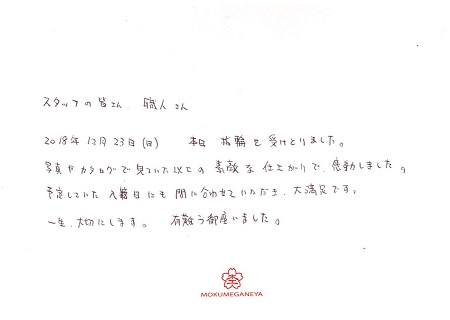 スタッフの皆さん 職人さん
2018年12月23日(日) 本日 指輪を受けとりました。
写真やカタログで見ていた以上の素敵な仕上がりで、感動しました。
予定していた入籍日にも間に合わせていただき、大満足です。
一生、大切にします。 有難う御座いました。
MOKUMEGANEYA